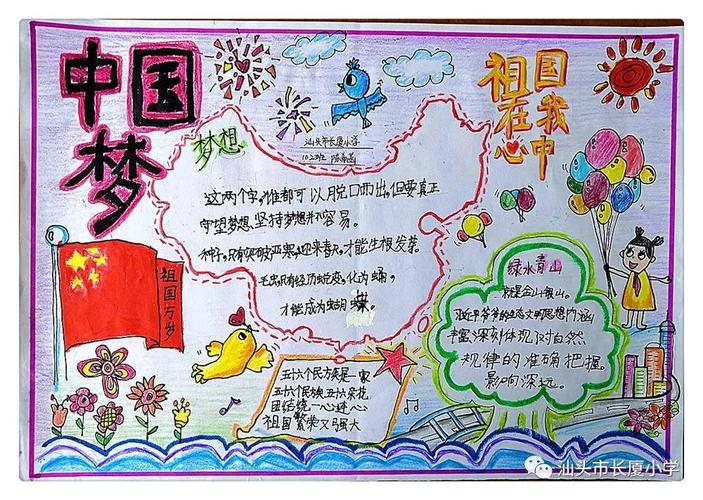 中国梦
祖国在我心中
汕头市长厦小学
梦想
这两个字,谁都可以脱口而出,但要真正
守望梦想,坚持梦想并不容易。
种子,只有突破严寒,迎来春天,才能生根发芽。
毛虫只有经历蜕变,化为蛹,
才能成为蝴蝶。
祖国万岁
绿水青山
就是金山银山。
习近平爷爷的生态文明思想内涵
丰富,深刻体现对自然
规律的准确把握,
影响深远。
五六个民族是一家
五六个民族五六朵花
团结统一心连心
祖国繁荣又强大
汕头市长厦小学